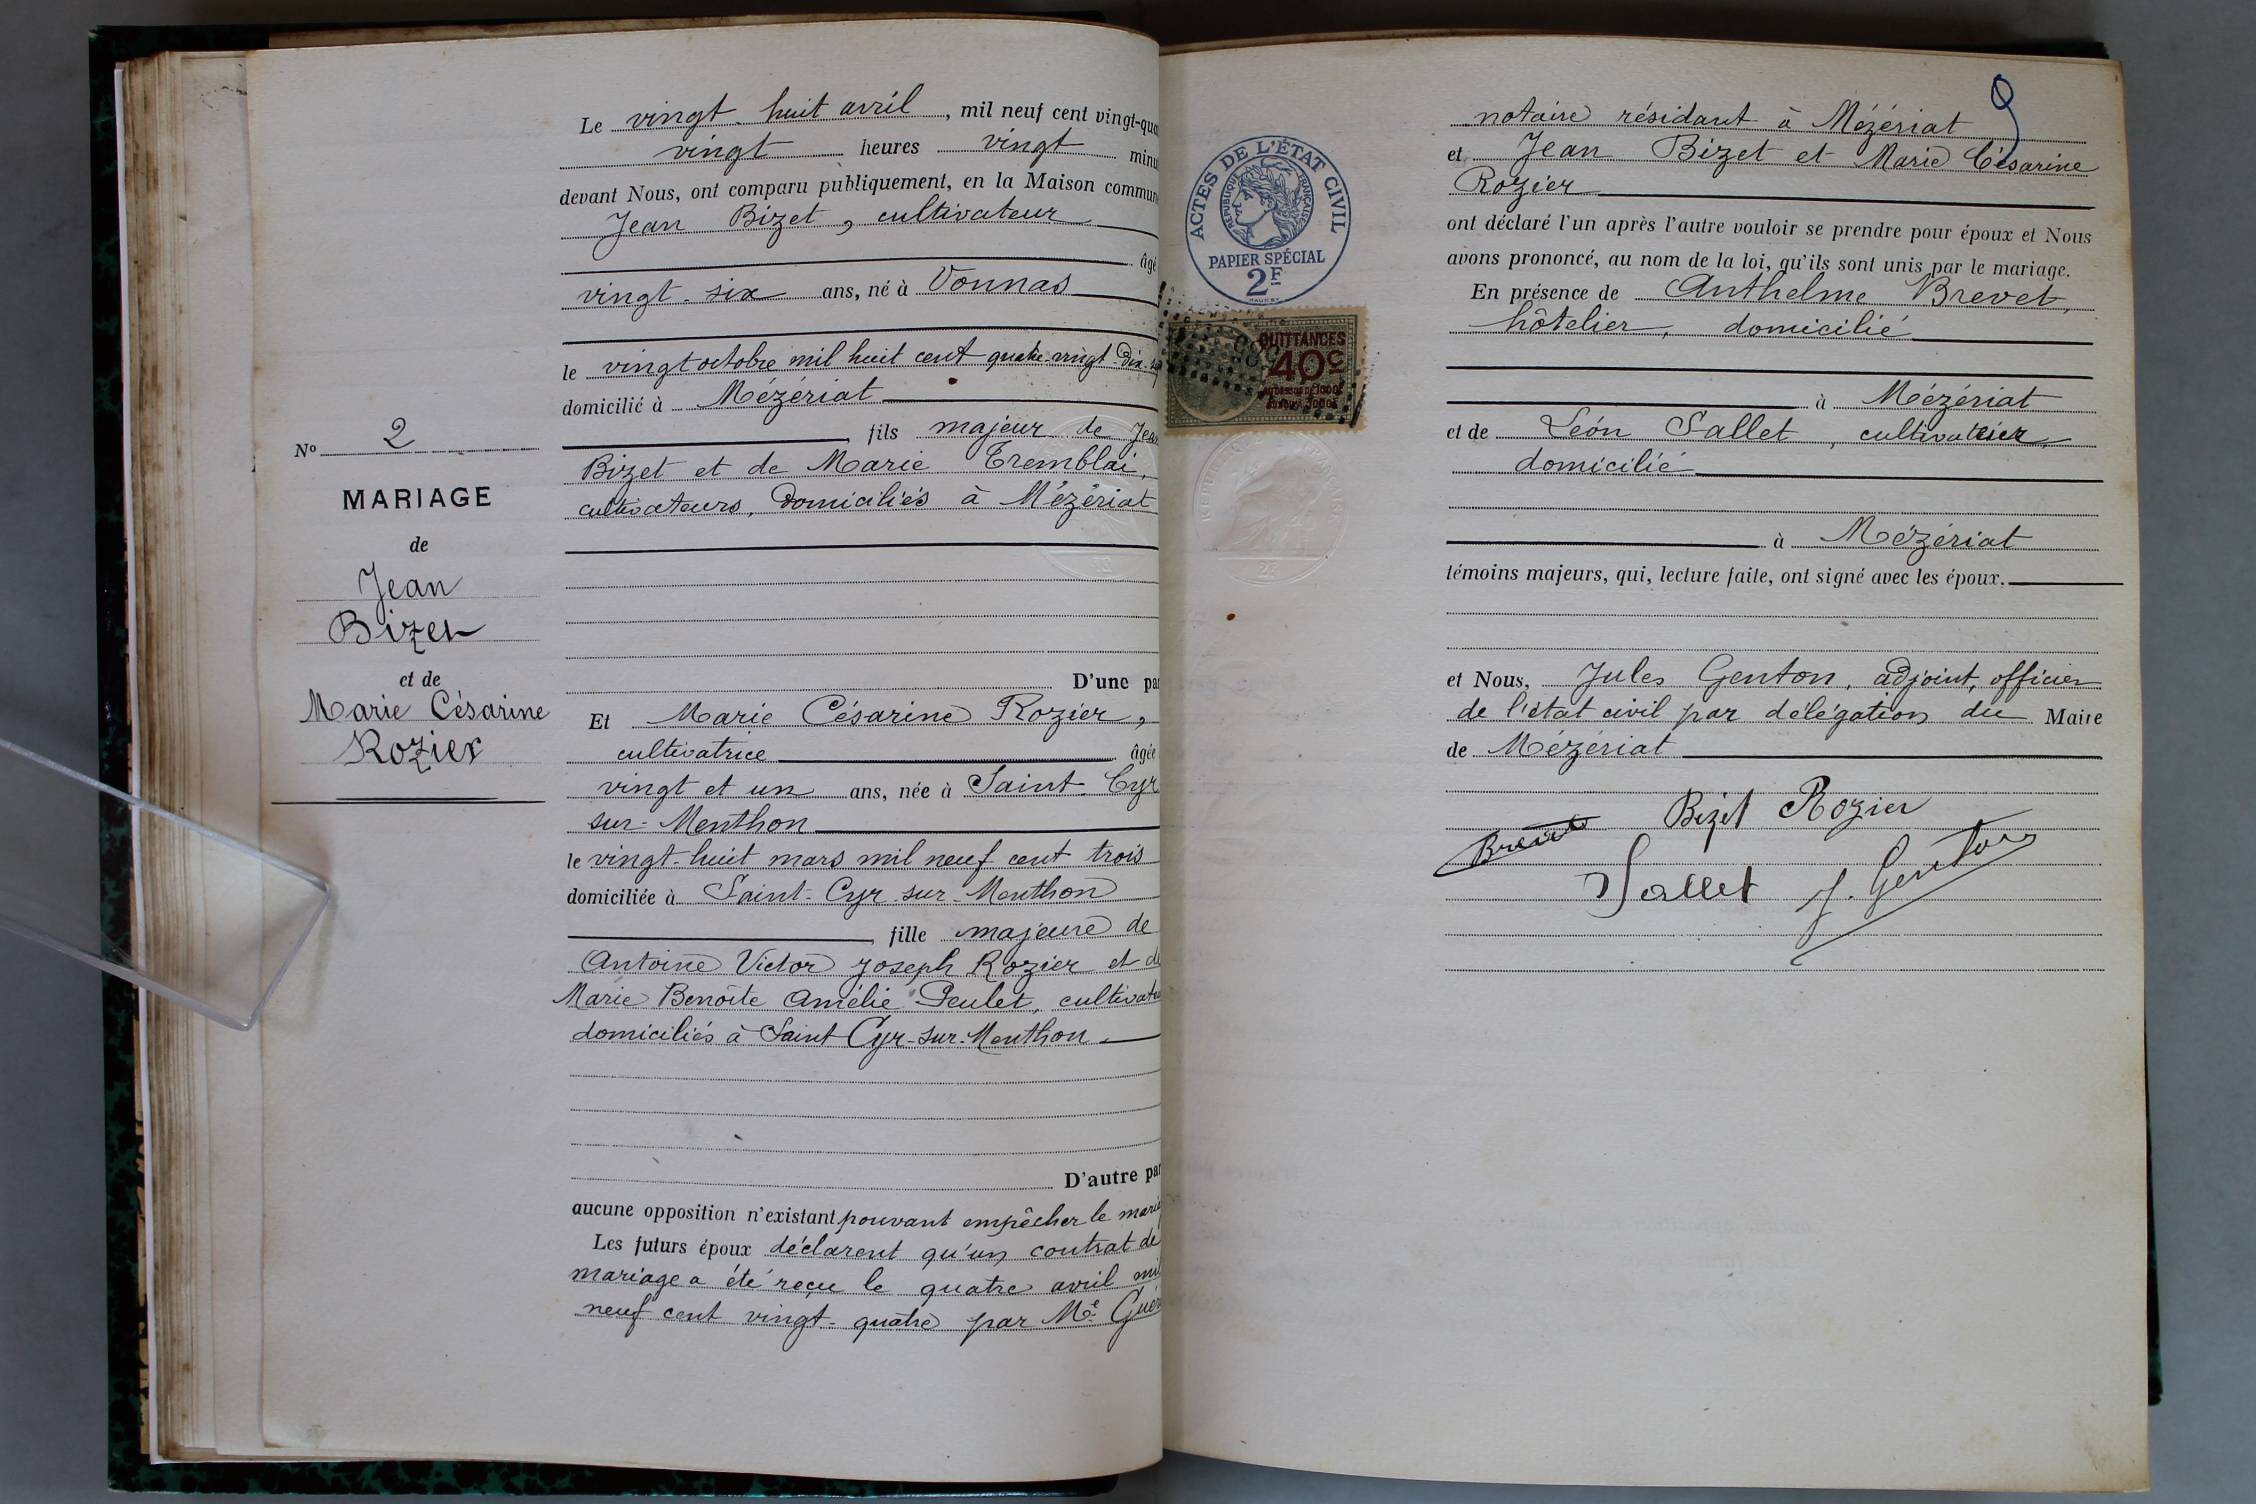 Le vingt-huit avril, mil neuf cent vingt-qua
vingt heures vingt minu
devant Nous, ont comparu publiquement, en la Maison commun
Jean Bizet, cultivateur
âgé
vingt-six ans, né à Vonnas
le vingt octobre mil huit cent quatre-vingt-dix-
domicilié à Mézériat
fils majeur de Jean
Bizet et de Marie Tremblai,
cultivateurs, domiciliés à Mézériat
No 2
MARIAGE
de
Jean
Bizet
et de
Marie Césarine
Rozier
D'une par
Et Marie Césarine Rozier,
cultivatrice âgée
vingt et un ans, née à Saint-Cyr
sur-Menthon
le vingt-huit mars mil neuf cent trois
domiciliée à Saint-Cyr-sur-Menthon
fille majeure de
Antoine Victor Joseph Rozier et de
Marie Benoîte Amélie Peulet, cultivateu
domiciliés à Saint Cyr-sur-Menthon
D'autre par
aucune opposition n'existant pouvant empêcher le maria
Les futurs époux déclarent qu'un contrat de
mariage a été reçu le quatre avril mil
neuf cent vingt-quatre par Me Guér
9
notaire résidant à Mézériat
et Jean Bizet et Marie Césarine
Rozier
ont déclaré l'un après l'autre vouloir se prendre pour époux et Nous
avons prononcé, au nom de la loi, qu'ils sont unis par le mariage.
En présence de Anthelme Brevet,
hôtelier, domicilié
à Mézériat
et de Léon Sallet, cultivateur,
domicilié
à Mézériat
témoins majeurs, qui, lecture faite, ont signé avec les époux.
et Nous, Jules Genton, adjoint, officier
de l'état civil par délégation du Maire
de Mézériat
Bizet Rozier
Brevet
Sallet J. Genton
ACTES DE L'ÉTAT CIVIL
RÉPUBLIQUE FRANÇAISE
PAPIER SPÉCIAL
2F
QUITTANCES
40c
2F